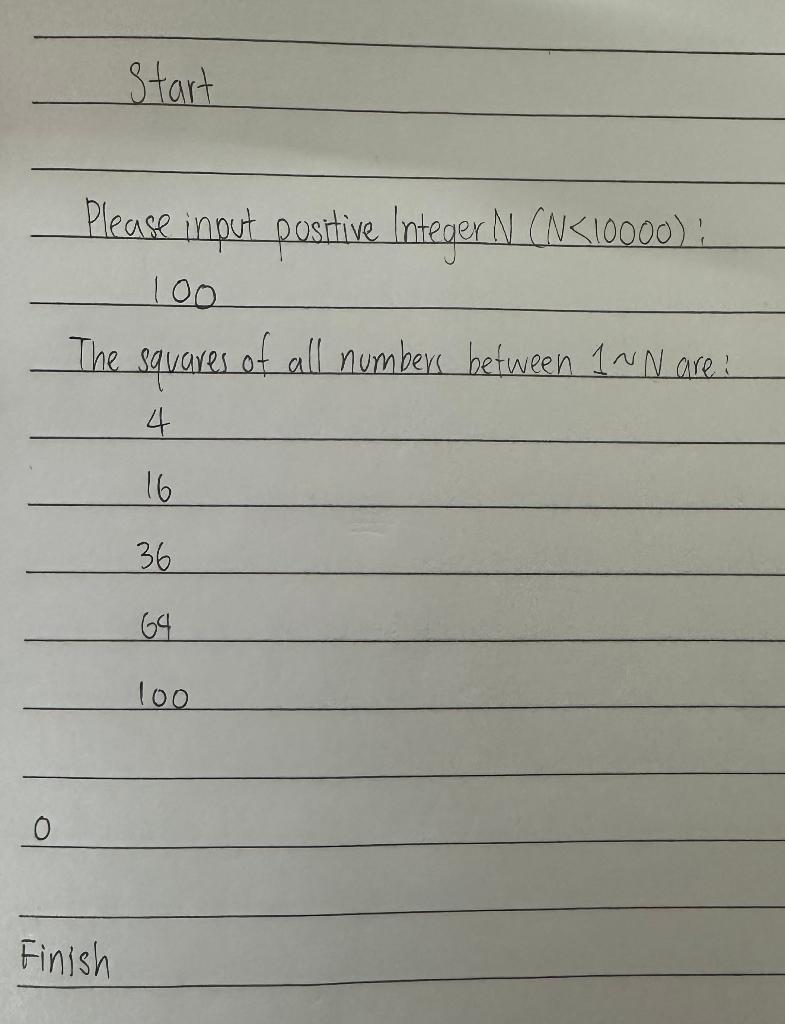 Start
Please input positive Integer N (N<10000):
100
The squares of all numbers between 1~N are:
4
16
36
64
100
0
Finish